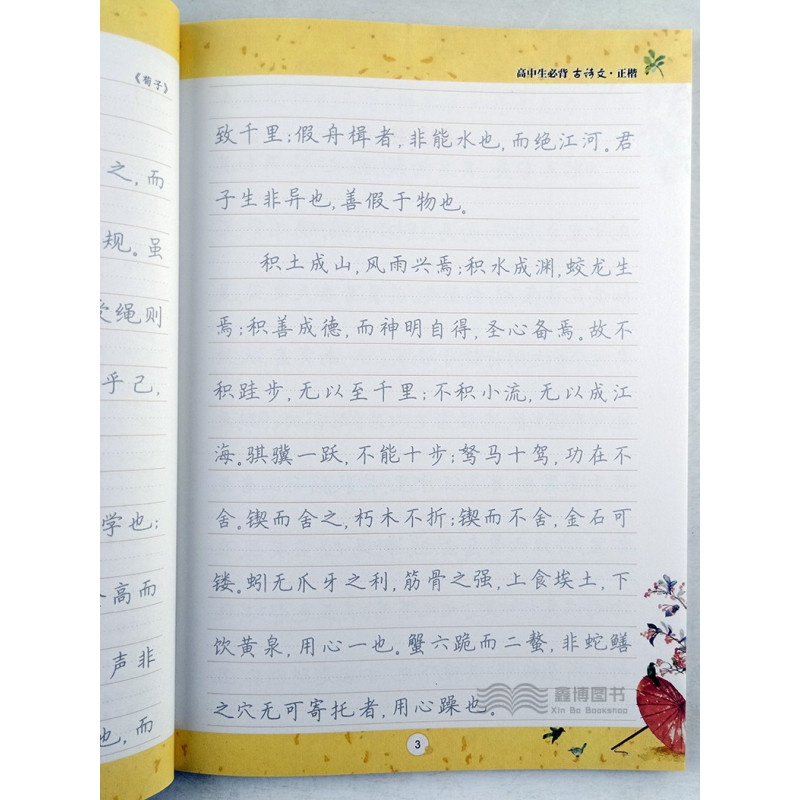 《荀子》
之,而
规。虽
绳则
乎己,
学也;
高而
声非
也,而
高中生必背 古诗文·正楷
致千里;假舟楫者,非能水也,而绝江河。君
子生非异也,善假于物也。
积土成山,风雨兴焉;积水成渊,蛟龙生
焉;积善成德,而神明自得,圣心备焉。故不
积跬步,无以至千里;不积小流,无以成江
海。骐骥一跃,不能十步;驽马十驾,功在不
舍。锲而舍之,朽木不折;锲而不舍,金石可
镂。蚓无爪牙之利,筋骨之强,上食埃土,下
饮黄泉,用心一也。蟹六跪而二螯,非蛇鳝
之穴无可寄托者,用心躁也。
鑫博图书
Xin Bo Bookshop
3